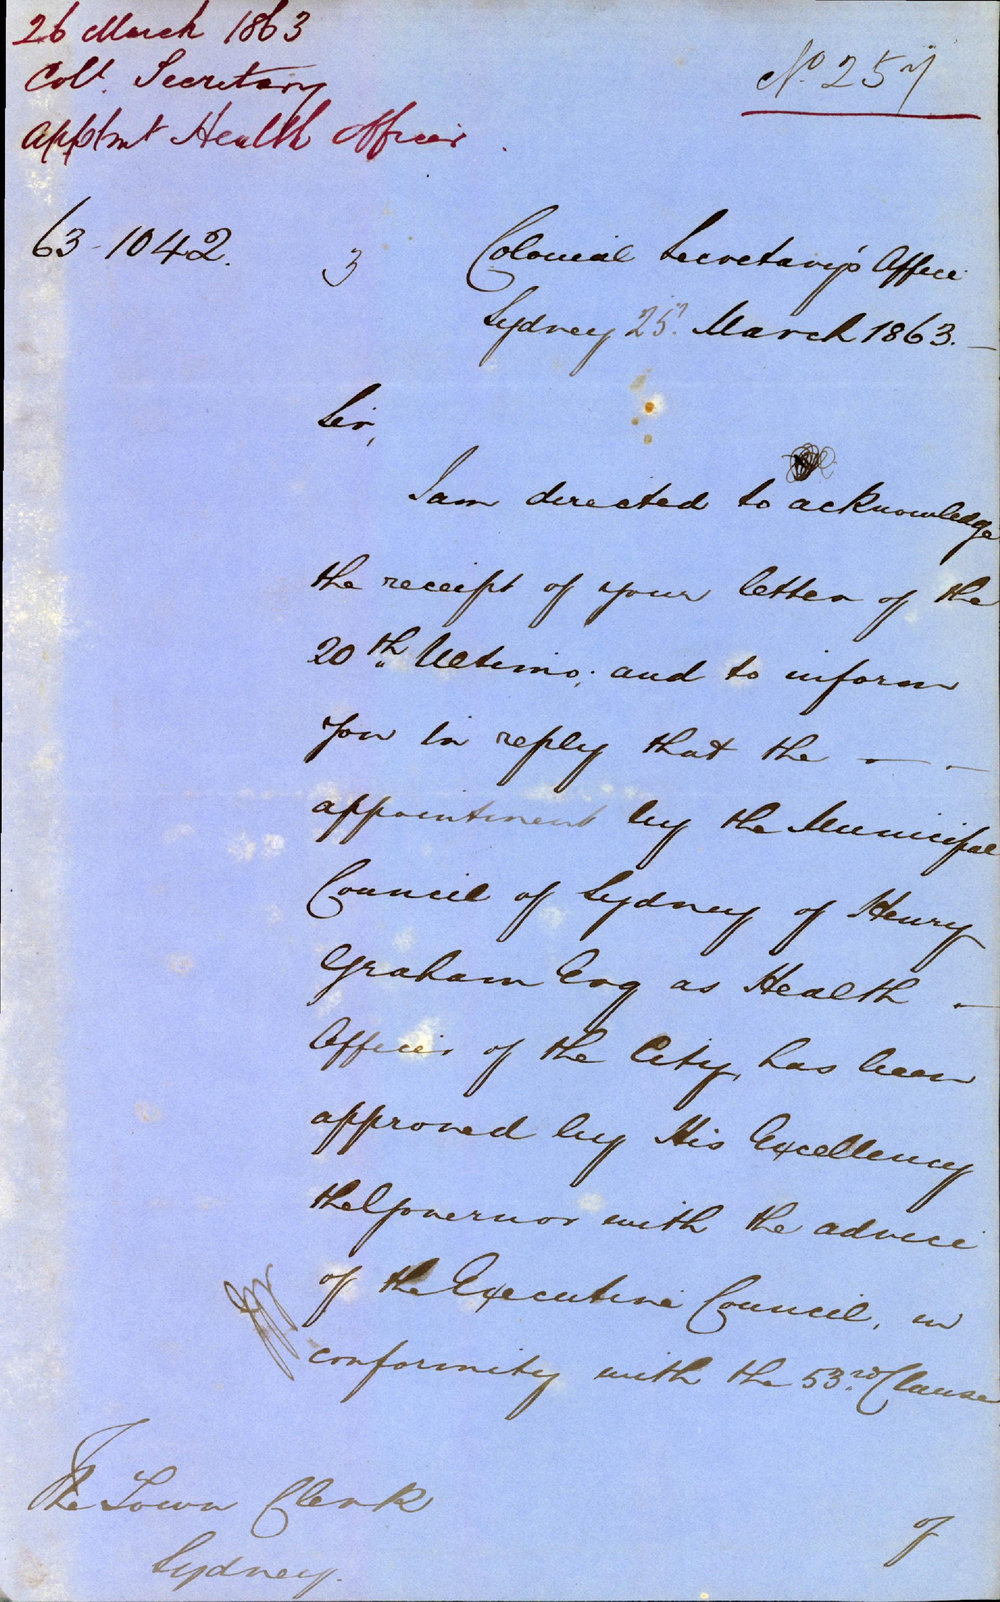 26 March 1863
Coll. Secretary
Apptmt Health Officer
No. 257
63-1042.
3
Colonial Secretary's Office
Sydney 25th March 1863.
Sir,
I am directed to acknowledge
the receipt of your letter of the
20th Ultimo; and to inform
you in reply that the
appointment by the Municipal
Council of Sydney of Henry
Graham Esq as Health
Officer of the City, has been
approved by His Excellency
the Governor with the advice
of the Executive Council, in
conformity with the 53rd Clause
of
The Town Clerk
Sydney.